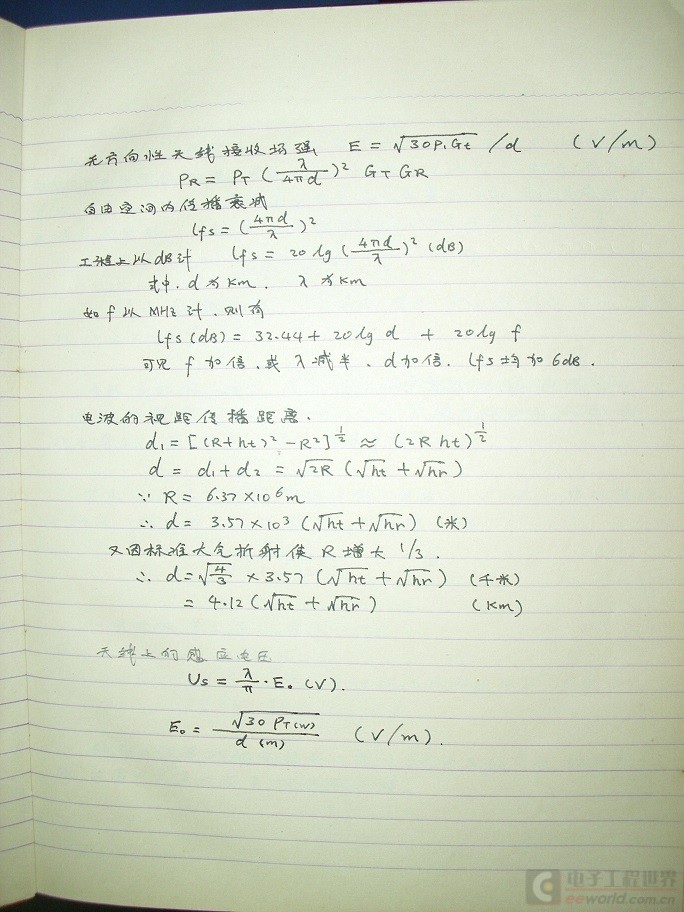 无方向性天线接收场强 E = √30P₁Gt /d (V/m)
PR = PT (λ/4πd)² GT GR
自由空间内传播衰减
Lfs = (4πd/λ)²
工程上以dB计 Lfs = 20 lg (4πd/λ)² (dB)
式中. d为km. λ为km
如 f 以 MHz 计. 则有
Lfs (dB) = 32.44 + 20 lg d + 20 lg f
可见 f 加倍. 或 λ 减半. d 加倍. Lfs 均加 6dB.
电波的视距传播距离.
d₁ = [(R+ht)² - R²]^½ ≈ (2R ht)^½
d = d₁ + d₂ = √2R (√ht + √hr)
∵ R = 6.37 × 10⁶ m
∴ d = 3.57 × 10³ (√ht + √hr) (米)
又因标准大气折射使 R 增大 1/3.
∴ d = √4/3 × 3.57 (√ht + √hr) (千米)
= 4.12 (√ht + √hr) (km)
天线上的感应电压
Us = λ/π · E₀ (V).
E₀ = √30 PT(W) / d (m) (V/m).
电子工程世界
eeworld.com.cn